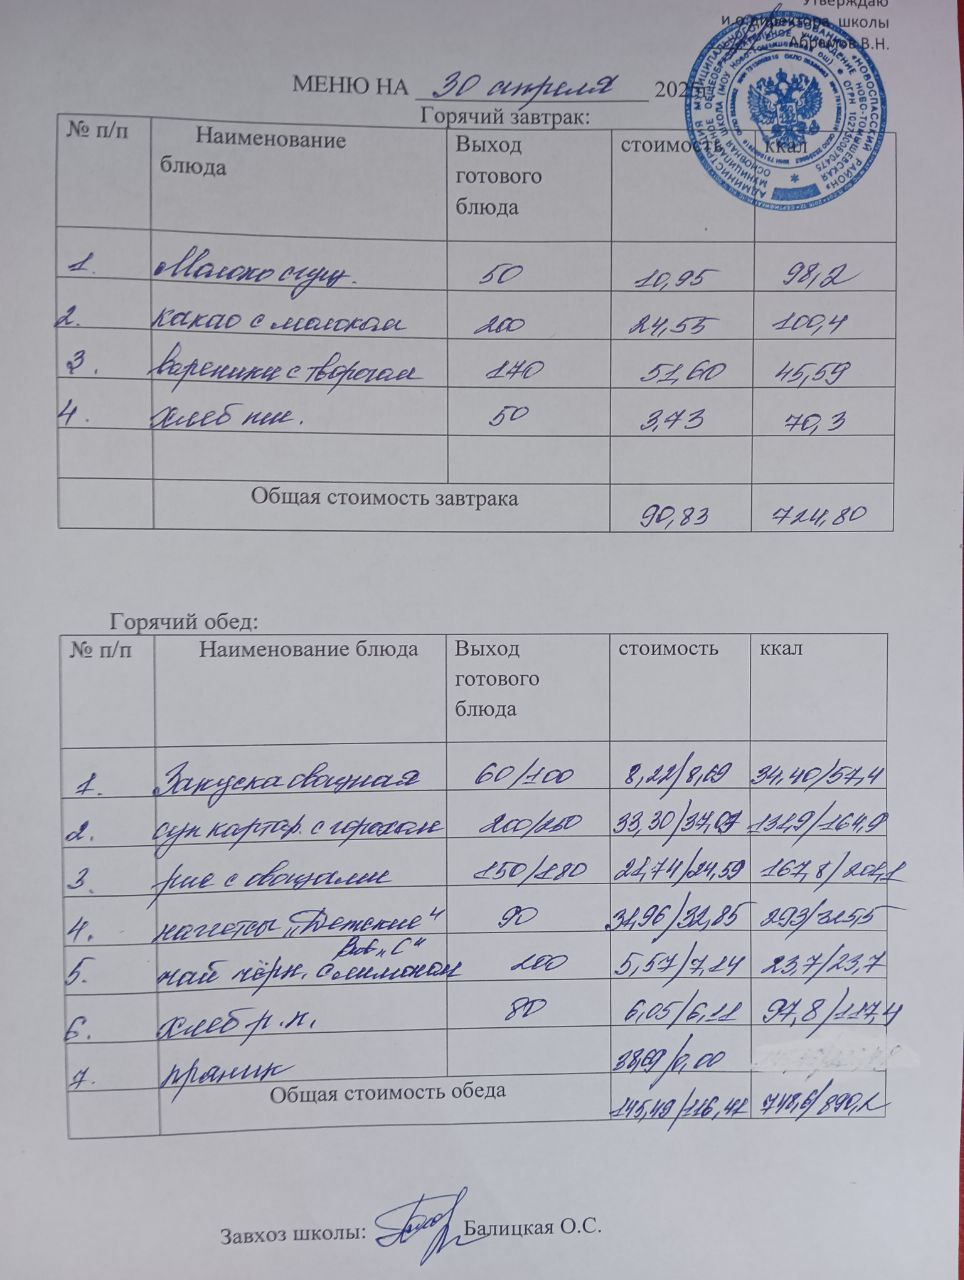 Утверждаю
и.о директора школы
Абрамов В.Н.
МЕНЮ НА 30 апреля 202
Горячий завтрак:
№ п/п Наименование блюда Выход готового блюда стоимость ккал
1. Молоко сгущ. 50 10,95 98,2
2. какао с молоком 200 24,55 100,4
3. вареники с творогом 170 51,60 45,59
4. хлеб пш. 50 3,73 70,3
Общая стоимость завтрака 90,83 724,80
Горячий обед:
№ п/п Наименование блюда Выход готового блюда стоимость ккал
1. Закуска овощная 60/100 8,22/8,69 34,40/57,4
2. суп картоф. с горохом 33,30/37,03 131,9/164,9
3. рис с овощами 150/180 21,74/24,59 167,8/201,1
4. наггетсы „Детские" 90 31,96/32,85 293/315,5
Вит „С"
5. чай чёрн. с лимоном 200 5,57/7,14 23,7/23,7
6. хлеб р.п. 80 6,05/6,11 97,8/117,4
7. пряник 38,69/0,00
Общая стоимость обеда 145,49/116,41 748,6/890,2
Завхоз школы: Балицкая О.С.